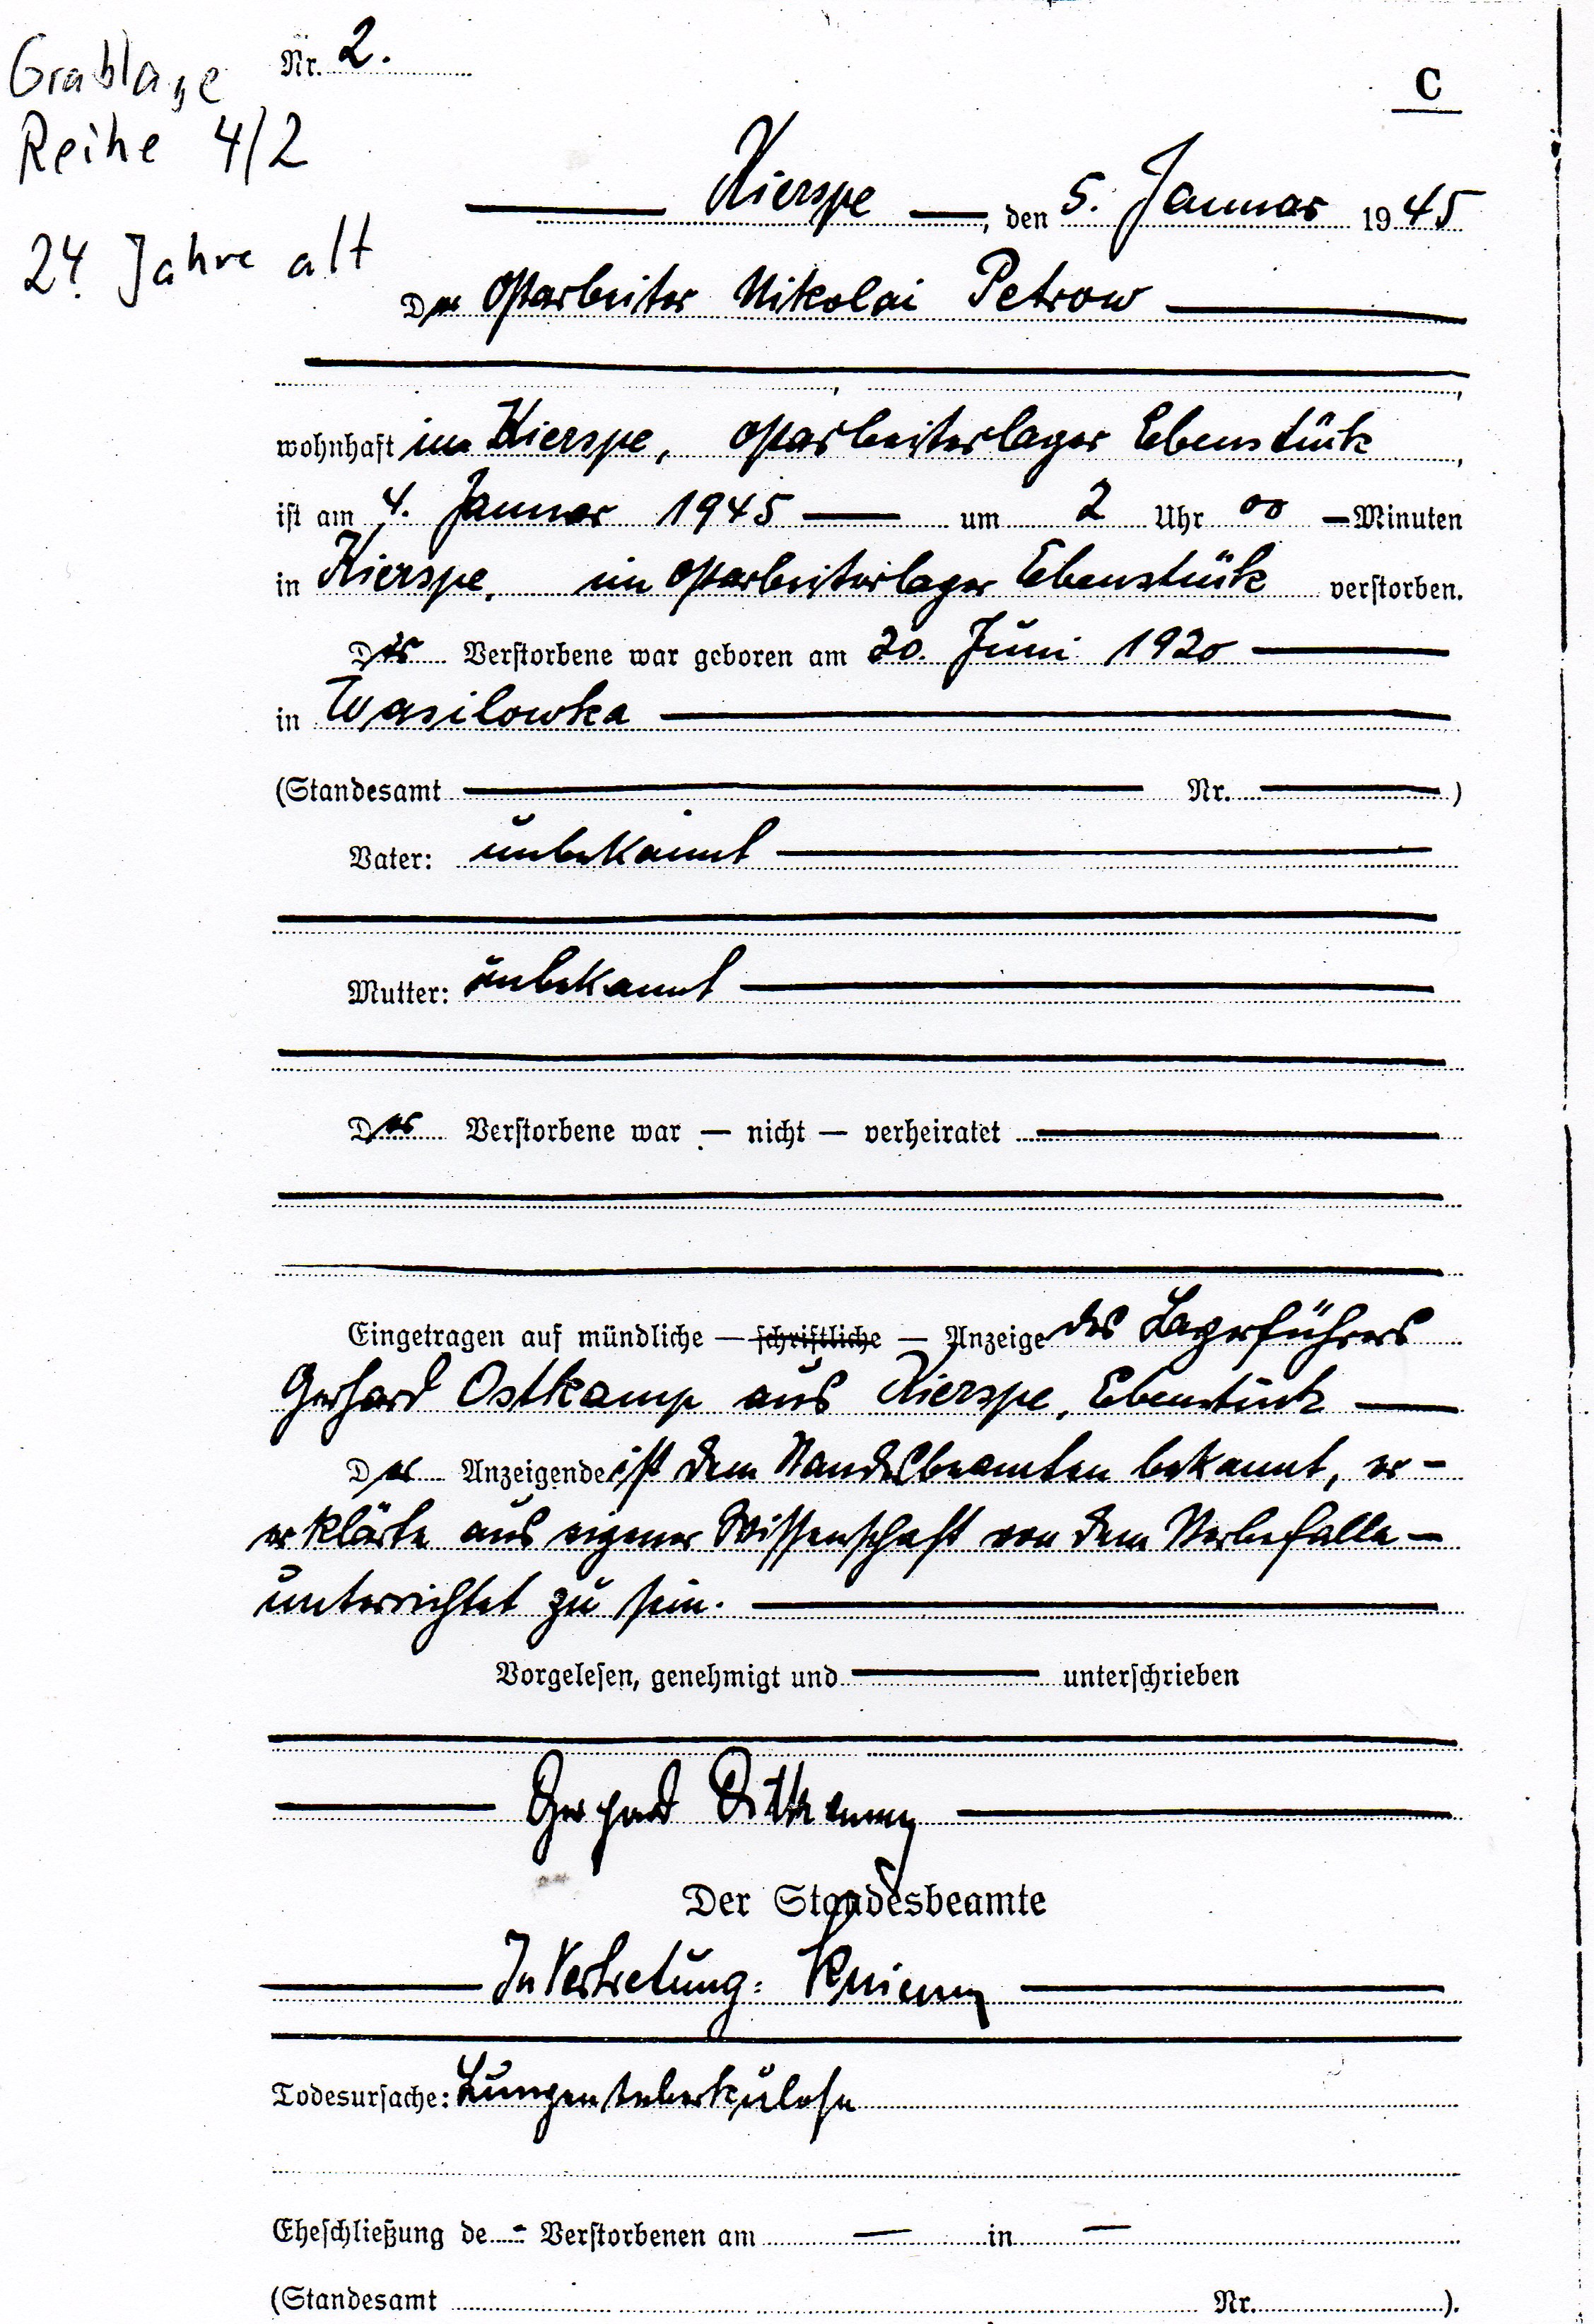 Grablage
Reihe 4/2
24 Jahre alt
Nr. 2.
C
Kierspe, den 5. Januar 1945
Der Ostarbeiter Nikolai Petrow
wohnhaft in Kierspe, Ostarbeiterlager Ebenstück,
ist am 4. Januar 1945 um 2 Uhr 00 Minuten
in Kierspe, im Ostarbeiterlager Ebenstück verstorben.
Der Verstorbene war geboren am 20. Juni 1920
in Wasilowka
(Standesamt Nr. )
Vater: unbekannt
Mutter: unbekannt
Der Verstorbene war — nicht — verheiratet
Eingetragen auf mündliche — schriftliche — Anzeige des Lagerführers
Gerhard Ostkamp aus Kierspe, Ebenstück
Der Anzeigende ist dem Standesbeamten bekannt, er-
erklärte aus eigener Wissenschaft von dem Sterbefalle
unterrichtet zu sein.
Vorgelesen, genehmigt und unterschrieben
Gerhard Ostkamp
Der Standesbeamte
In Vertretung:
Todesursache: Lungentuberkulose
Eheschließung de - Verstorbenen am — in —
(Standesamt Nr. ).